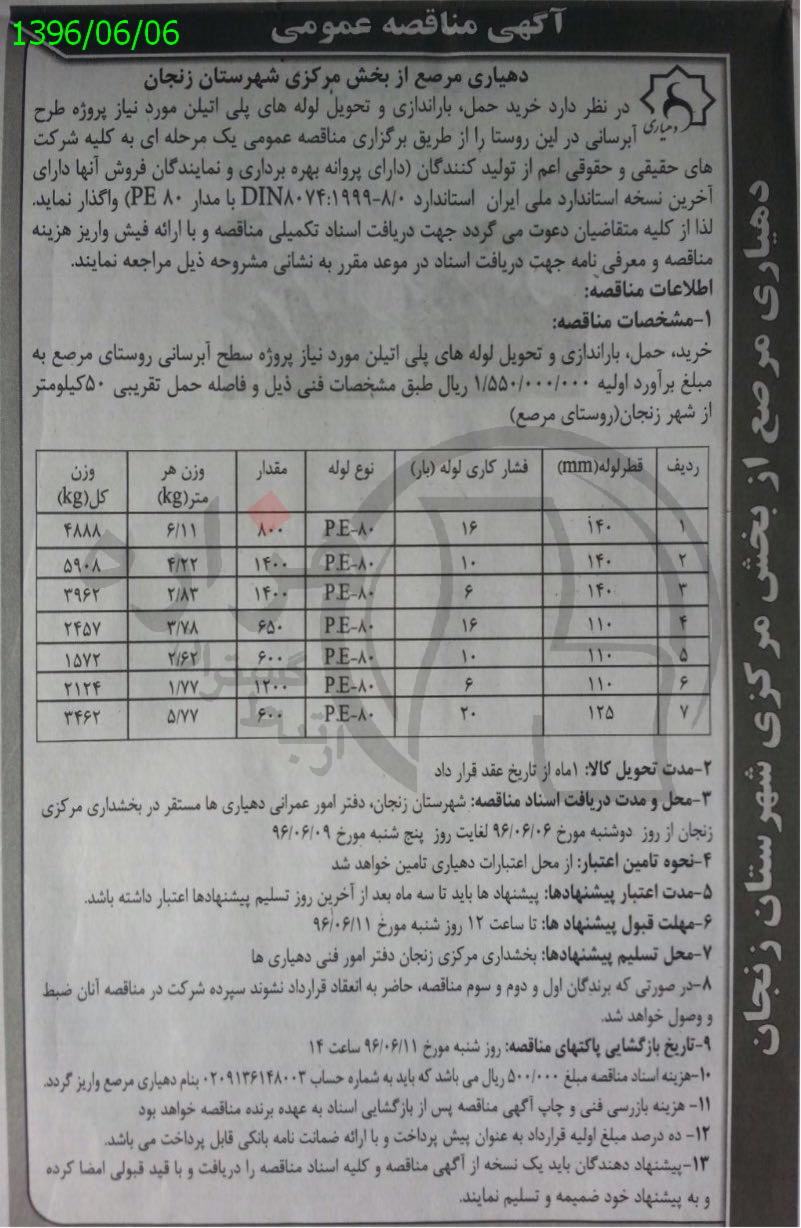 1396/06/06
آگهی مناقصه عمومی
دهیاری مرصع از بخش مرکزی شهرستان زنجان
دهیاری
در نظر دارد خرید حمل، باراندازی و تحویل لوله های پلی اتیلن مورد نیاز پروژه طرح
آبرسانی در این روستا را از طریق برگزاری مناقصه عمومی یک مرحله ای به کلیه شرکت
های حقیقی و حقوقی اعم از تولید کنندگان (دارای پروانه بهره برداری و نمایندگان فروش آنها دارای
آخرین نسخه استاندارد ملی ایران استاندارد DIN۸۰۷۴:۱۹۹۹-۸/۰ با مدار PE ۸۰) واگذار نماید.
لذا از کلیه متقاضیان دعوت می گردد جهت دریافت اسناد تکمیلی مناقصه و با ارائه فیش واریز هزینه
مناقصه و معرفی نامه جهت دریافت اسناد در موعد مقرر به نشانی مشروحه ذیل مراجعه نمایند.
اطلاعات مناقصه:
۱-مشخصات مناقصه:
خرید، حمل، باراندازی و تحویل لوله های پلی اتیلن مورد نیاز پروژه سطح آبرسانی روستای مرصع به
مبلغ برآورد اولیه ۱/۵۵۰/۰۰۰/۰۰۰ ریال طبق مشخصات فنی ذیل و فاصله حمل تقریبی ۵۰کیلومتر
از شهر زنجان(روستای مرصع)
ردیف قطرلوله(mm) فشار کاری لوله (بار) نوع لوله مقدار وزن هر متر(kg) وزن کل(kg)
۱ ۱۴۰ ۱۶ P.E-۸۰ ۸۰۰ ۶/۱۱ ۴۸۸۸
۲ ۱۴۰ ۱۰ P.E-۸۰ ۱۴۰۰ ۴/۲۲ ۵۹۰۸
۳ ۱۴۰ ۶ P.E-۸۰ ۱۴۰۰ ۲/۸۳ ۳۹۶۲
۴ ۱۱۰ ۱۶ P.E-۸۰ ۶۵۰ ۳/۷۸ ۲۴۵۷
۵ ۱۱۰ ۱۰ P.E-۸۰ ۶۰۰ ۲/۶۲ ۱۵۷۲
۶ ۱۱۰ ۶ P.E-۸۰ ۱۲۰۰ ۱/۷۷ ۲۱۲۴
۷ ۱۲۵ ۲۰ P.E-۸۰ ۶۰۰ ۵/۷۷ ۳۴۶۲
۲-مدت تحویل کالا: ۱ماه از تاریخ عقد قرار داد
۳-محل و مدت دریافت اسناد مناقصه: شهرستان زنجان، دفتر امور عمرانی دهیاری ها مستقر در بخشداری مرکزی
زنجان از روز دوشنبه مورخ ۹۶/۰۶/۰۶ لغایت روز پنج شنبه مورخ ۹۶/۰۶/۰۹
۴-نحوه تامین اعتبار: از محل اعتبارات دهیاری تامین خواهد شد
۵-مدت اعتبار پیشنهادها: پیشنهاد ها باید تا سه ماه بعد از آخرین روز تسلیم پیشنهادها اعتبار داشته باشد.
۶-مهلت قبول پیشنهاد ها: تا ساعت ۱۲ روز شنبه مورخ ۹۶/۰۶/۱۱
۷-محل تسلیم پیشنهادها: بخشداری مرکزی زنجان دفتر امور فنی دهیاری ها
۸-در صورتی که برندگان اول و دوم و سوم مناقصه، حاضر به انعقاد قرارداد نشوند سپرده شرکت در مناقصه آنان ضبط
و وصول خواهد شد.
۹-تاریخ بازگشایی پاکتهای مناقصه: روز شنبه مورخ ۹۶/۰۶/۱۱ ساعت ۱۴
۱۰-هزینه اسناد مناقصه مبلغ ۵۰۰/۰۰۰ ریال می باشد که باید به شماره حساب ۰۲۰۹۱۳۶۱۴۸۰۰۳ بنام دهیاری مرصع واریز گردد.
۱۱- هزینه بازرسی فنی و چاپ آگهی مناقصه پس از بازگشایی اسناد به عهده برنده مناقصه خواهد بود
۱۲- ده درصد مبلغ اولیه قرارداد به عنوان پیش پرداخت و با ارائه ضمانت نامه بانکی قابل پرداخت می باشد.
۱۳-پیشنهاد دهندگان باید یک نسخه از آگهی مناقصه و کلیه اسناد مناقصه را دریافت و با قید قبولی امضا کرده
و به پیشنهاد خود ضمیمه و تسلیم نمایند.
دهیاری مرصع از بخش مرکزی شهرستان زنجان